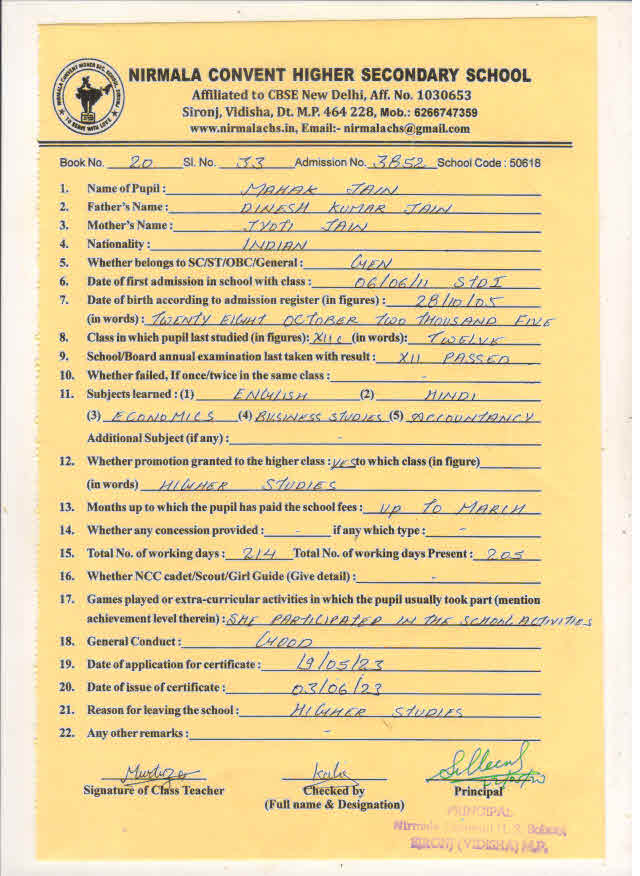 NIRMALA CONVENT HIGHER SECONDARY SCHOOL
Affiliated to CBSE New Delhi, Aff. No. 1030653
Sironj, Vidisha, Dt. M.P. 464 228, Mob.: 6266747359
www.nirmalachs.in, Email:- nirmalachs@gmail.com
Book No. 20 Sl. No. 33 Admission No. 3852 School Code : 50618
1. Name of Pupil : MAHAK JAIN
2. Father's Name : DINESH KUMAR JAIN
3. Mother's Name : JYOTI JAIN
4. Nationality : INDIAN
5. Whether belongs to SC/ST/OBC/General : GEN
6. Date of first admission in school with class : 06/06/11 STD I
7. Date of birth according to admission register (in figures) : 28/10/05
(in words) : TWENTY EIGHT OCTOBER TWO THOUSAND FIVE
8. Class in which pupil last studied (in figures): XII C (in words): TWELVE
9. School/Board annual examination last taken with result : XII PASSED
10. Whether failed, If once/twice in the same class : -
11. Subjects learned : (1) ENGLISH (2) HINDI
(3) ECONOMICS (4) BUSINESS STUDIES (5) ACCOUNTANCY
Additional Subject (if any) : -
12. Whether promotion granted to the higher class : YES to which class (in figure)
(in words) HIGHER STUDIES
13. Months up to which the pupil has paid the school fees : UP TO MARCH
14. Whether any concession provided : - if any which type : -
15. Total No. of working days : 214 Total No. of working days Present : 205
16. Whether NCC cadet/Scout/Girl Guide (Give detail) : -
17. Games played or extra-curricular activities in which the pupil usually took part (mention
achievement level therein) : SHE PARTICIPATED IN THE SCHOOL ACTIVITIES
18. General Conduct : GOOD
19. Date of application for certificate : 19/05/23
20. Date of issue of certificate : 03/06/23
21. Reason for leaving the school : HIGHER STUDIES
22. Any other remarks : -
Signature of Class Teacher Checked by Principal
(Full name & Designation)
PRINCIPAL
Nirmala Convent H. S. School
SIRONJ (VIDISHA) M.P.